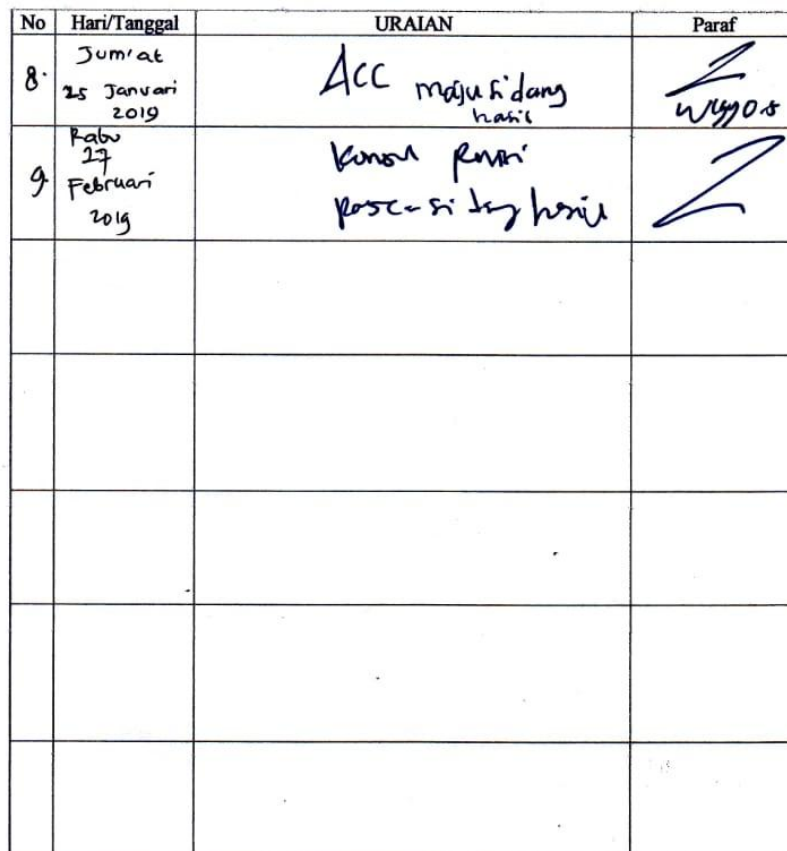 No Hari/Tanggal URAIAN Paraf
8. Jum'at
25 Januari
2019
ACC maju sidang
hasil
9. Rabu
27
Februari
2019
Konsul Revisi
Pasca sidang hasil